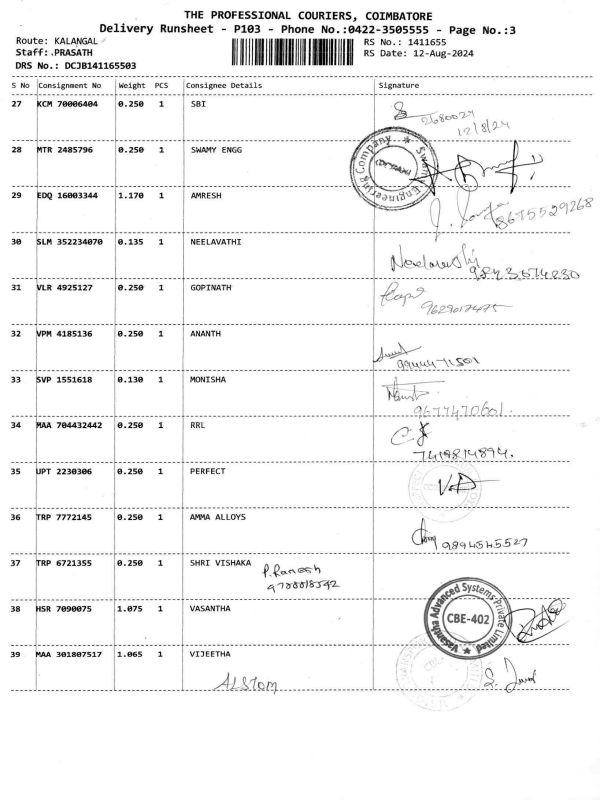 THE PROFESSIONAL COURIERS, COIMBATORE
Delivery Runsheet - P103 - Phone No.:0422-3505555 - Page No.:3
Route: KALANGAL RS No.: 1411655
Staff: PRASATH RS Date: 12-Aug-2024
DRS No.: DCJB141165503
S No Consignment No Weight PCS Consignee Details Signature
27 KCM 70006404 0.250 1 SBI
2680027
12/8/24
28 MTR 2485796 0.250 1 SWAMY ENGG
Swamy Engineering Company
29 EDQ 16003344 1.170 1 AMRESH
8675529268
30 SLM 352234070 0.135 1 NEELAVATHI
Neelavathi
9843674230
31 VLR 4925127 0.250 1 GOPINATH
9629017475
32 VPM 4185136 0.250 1 ANANTH
9944471501
33 SVP 1551618 0.130 1 MONISHA
9677470601.
34 MAA 704432442 0.250 1 RRL
7418814894.
35 UPT 2230306 0.250 1 PERFECT
36 TRP 7772145 0.250 1 AMMA ALLOYS
9894545527
37 TRP 6721355 0.250 1 SHRI VISHAKA
P. Ramesh
38 HSR 7090075 1.075 1 VASANTHA
Vasantha Advanced Systems Private Limited
CBE-402
39 MAA 301807517 1.065 1 VIJEETHA
ALSTOM